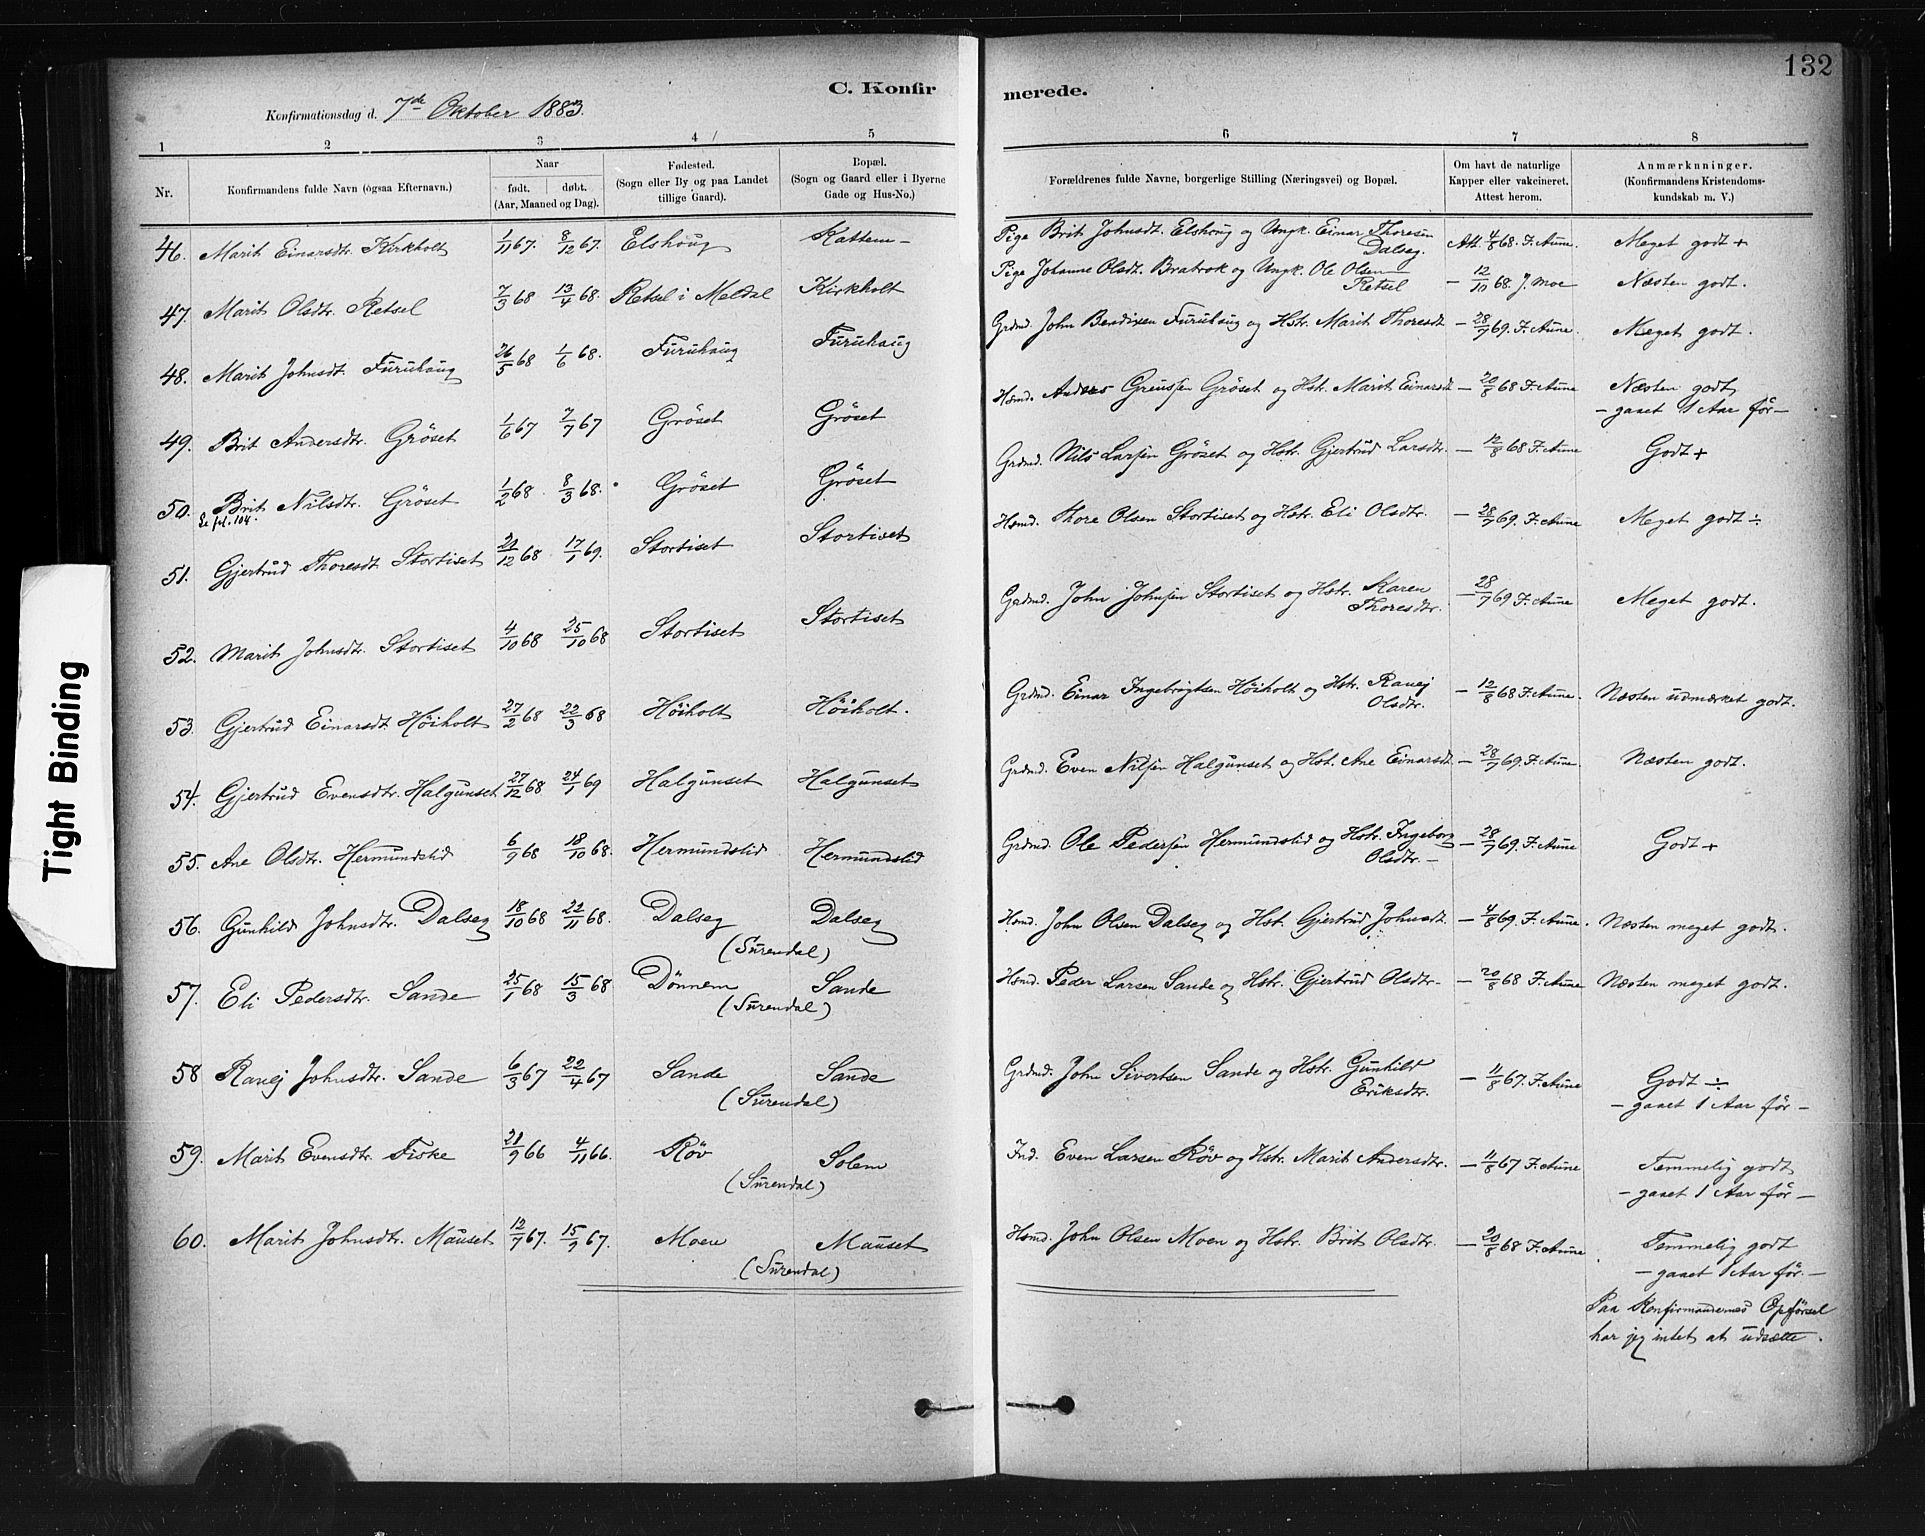 132
C. Konfirmerede.
Konfirmationsdag d. 7de Oktober 1883.
1 2 3 4 5 6 7 8
Nr.
Konfirmandens fulde Navn (ogsaa Efternavn.)
Naar
født. døbt.
(Aar, Maaned og Dag).
Fødested.
(Sogn eller By og paa Landet
tillige Gaard).
Bopæl.
(Sogn og Gaard eller i Byerne
Gade og Hus-No.)
Forældrenes fulde Navne, borgerlige Stilling (Næringsvei) og Bopæl.
Om havt de naturlige
Kopper eller vakcineret.
Attest herom.
Anmærkninger.
(Konfirmandens Kristendoms-
kundskab m. V.)
46. Marit Einarsdtr. Kirkholt 1/11 67. 8/12 67. Elshoug Kattem - Pige Brit Johnsdt. Elshoug og Ungk. Einar Thoresen Dalseg. Att. 4/8 68. F. Aune. Meget godt +
47. Marit Olsdtr. Retsel 7/3 68 13/4 68. Retsel i Meldal Kirkholt Pige Johanne Olsdt. Bratrok og Ungk. Ole Olsen Retsel - 12/10 68. J. Moe Næsten godt.
48. Marit Johnsdt. Furuhaug 26/5 68 1/6 68. Furuhaug Furuhaug Grdmd. John Bendixen Furuhaug og Hstr. Marit Thoresdt - 28/7 69. F. Aune. Meget godt.
49. Brit Andersdtr. Gröset 1/6 67 7/7 67 Gröset Gröset Hsmd. Anders Greussen Gröset og Hstr. Marit Einarsdt - 20/8 68 F. Aune Næsten godt
- gaaet 1 Aar før -
50. Brit Nilsdtr. Gröset 1/2 68. 8/3 68. Gröset Gröset Grdmd. Nils Larsen Gröset og Hstr. Gjertrud Larsdtr. - 12/8 68 F. Aune Godt +
Se fol. 104.
51. Gjertrud Thoresdt Stortiset 29/12 68 17/1 69. Stortiset Stortiset Hsmd. Thore Olsen Stortiset og Hstr. Eli Olsdtr. - 28/7 69. F. Aune Meget godt ÷
52. Marit Johnsdtr. Stortiset 4/10 68 25/10 68 Stortiset Stortiset Grdmd. John Johnsen Stortiset og Hstr. Karen Thoresdtr. - 28/7 69 F. Aune Meget godt.
53. Gjertrud Einarsdt. Höiholt 27/2 68 22/3 68 Höiholt Höiholt. Grdmd. Einar Ingebrigtsen Höiholt og Hstr. Ranej Olsdtr. - 12/8 68 F. Aune. Næsten udmærket godt.
54. Gjertrud Evensdtr. Halgunset 27/12 68 24/1 69 Halgunset Halgunset Grdmd. Even Nilsen Halgunset og Hst. Ane Einarsdt - 28/7 69. F. Aune. Næsten godt.
55. Ane Olsdtr. Hermundslid 6/9 68 18/10 68. Hermundslid Hermundslid Grdmd. Ole Pedersen Hermundslid og Hstr. Ingeborg Olsdtr. - - 28/7 69. F. Aune Godt +
56. Gunhild Johnsdtr. Dalseg 18/10 68 22/11 68. Dalseg Dalseg Hsmd. John Olsen Dalseg og Hst. Gjertrud Johnsdt. - 4/8 69. F. Aune. Næsten meget godt.
(Surendal)
57. Eli Pedersdtr. Sande 25/1 68 15/3 68 Dönnem Sande Hsmd. Peder Larsen Sande og Hstr. Gjertrud Olsdtr. - 20/8 68 F. Aune Næsten meget godt.
(Surendal)
58 Ranej Johnsdtr. Sande 6/3 67 22/4 67 Sande Sande Grdmd. John Sivertsen Sande og Hstr. Gunhild Eriksdtr. - 11/8 67. F. Aune Godt ÷
(Surendal) - gaaet 1 Aar før -
59. Marit Evensdtr. Fiske 21/9 66 4/11 66. Röv Solem Ind. Even Larsen Röv og Hstr. Marit Andersdtr. - 11/8 67 F. Aune Temmelig godt
(Surendal) - gaaet 1 Aar før -
60. Marit Johnsdtr. Mauset 12/7 67. 15/9 67. Moen Mauset Hsmd. John Olsen Moen og Hstr. Brit Olsdtr. - 20/8 68 F. Aune Temmelig godt
(Surendal) - gaaet 1 Aar før. -
Paa Konfirmandernes Opførsel
har jeg intet at udsætte.
Tight Binding